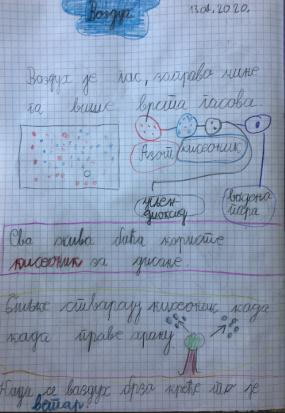 Ваздух
13.01.2020.
Ваздух је гас, заправо чине
га више врста гасова
Азот
кисеоник
угљен-
диоксид
Водена
пара
Сва жива бића користе
кисеоник за дисање.
Биљке стварају кисеоник када
када праве храну
Када се ваздух брзо креће то је
ветар